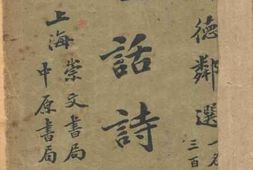 德鄰選
三百
話詩
上海
崇文書局
中原書局